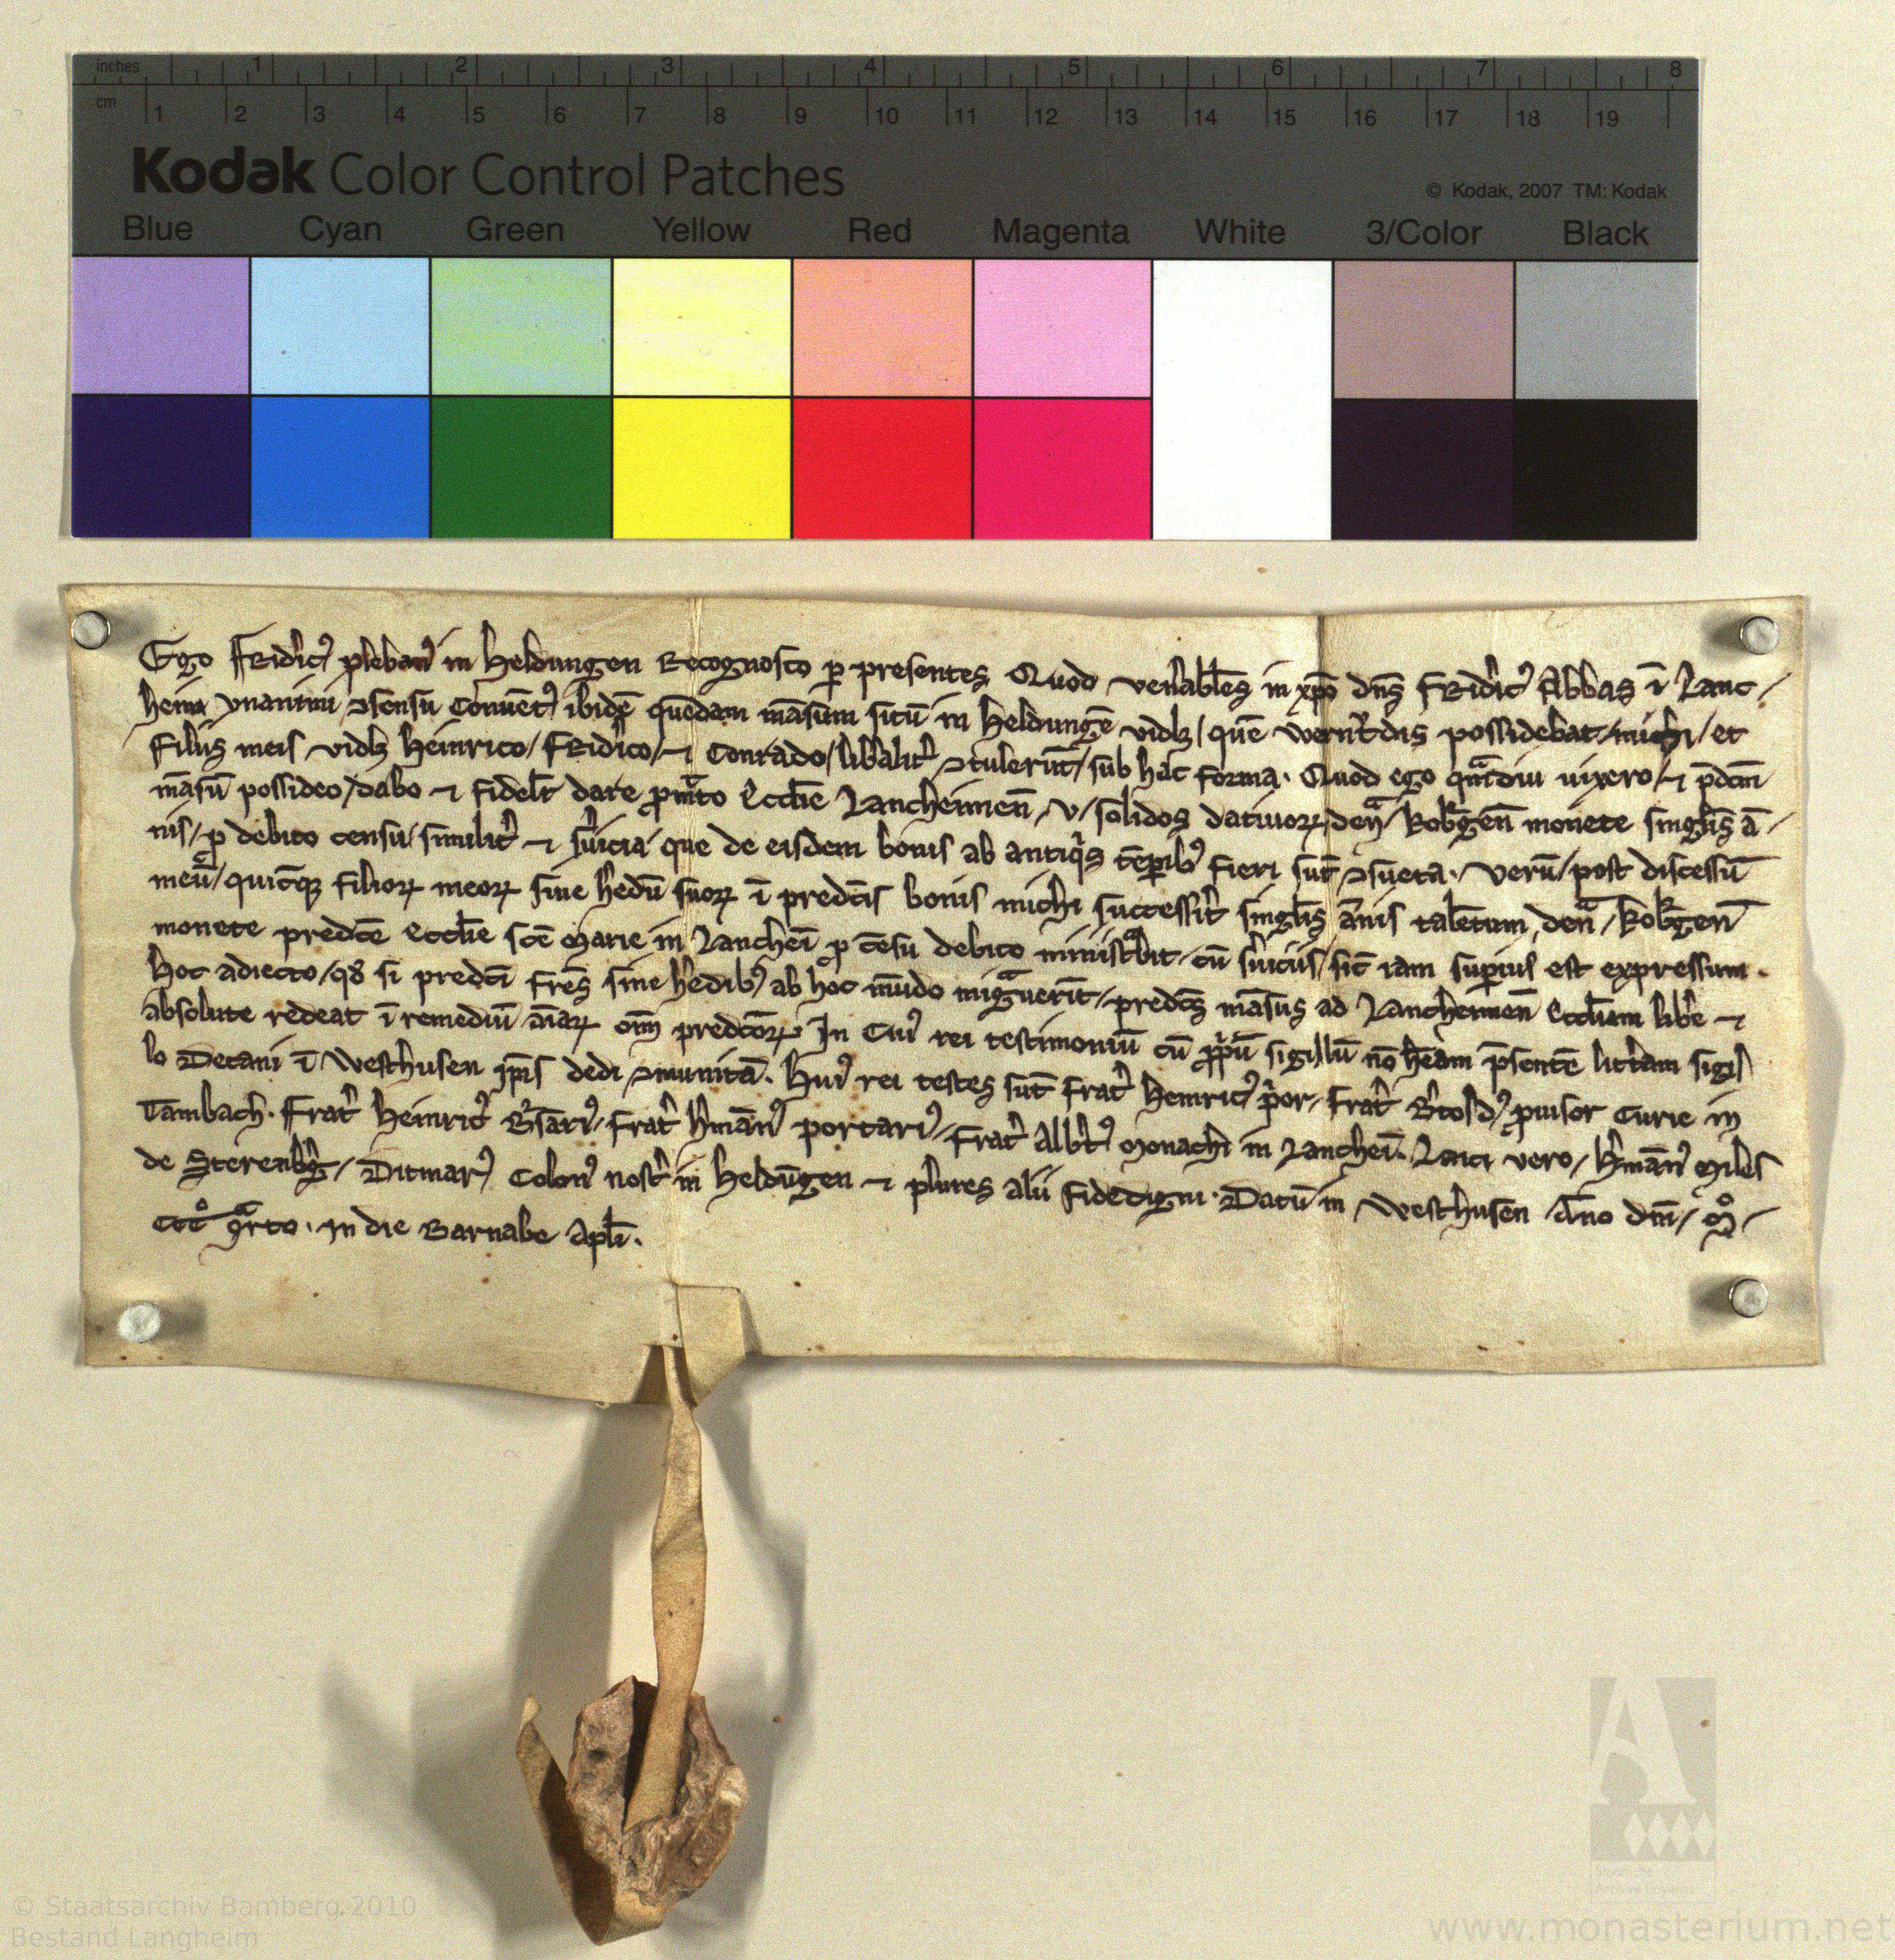 inches 1 2 3 4 5 6 7 8
cm 1 2 3 4 5 6 7 8 9 10 11 12 13 14 15 16 17 18 19
Kodak Color Control Patches
© Kodak, 2007 TM: Kodak
Blue Cyan Green Yellow Red Magenta White 3/Color Black
Ego Fridic᷒ pleban᷒ in Heldungen Recognosco ꝑ presentes Quod ven̓abl̄es in xp̄o dn̄s Fridic᷒ Abbas ī Lanc/
heim vnanimi ꝯsensu Conuēt᷒ ibidē quēdam māsum sitū in Heldungē vidꝫ/ quē possidebat/ michi/ et
filiis meis vidꝫ Heinrico/ Frid̓ico/ ⁊ Conrado/ lib̓alit̓ ꝯtulerūt/ sub hac forma. Quod ego qᵃmdiu uixero/ ⁊ p̄dc̄m
māsū possideo/ dabo ⁊ fidel̄r dare ꝓmᵃto Eccl̄ie Lancheimen̄/ v/ solidos datiuoꝝ/ den̄/ Kobᵉgen̄ monete singl̄is ā/
nis/ ꝓ debito censu/ similit̓ ⁊ s̓uicia que de eisdem bonis ab antiqͥs tēꝑib᷒ fieri sūt ꝯsueta. Verū/ post discessū
meū/ quicūqꝫ filioꝝ meoꝝ siue h̓edū suoꝝ ī predc̄is bonis michi successit̓ singl̄is ānis talētum den̄/ Kobᵉgen̄
monete predc̄e Eccl̄ie sc̄e Marie in Lancheī ꝓ cēsu debito ministᵃbit/ cū s̓uiciis/ sic̄ iam suꝑius est expressum.
hoc adiecto/ qd̓ si predc̄i fr̄es sine h̓edib᷒ ab hoc mūdo migᵃuerīt/ predc̄s māsus ad Lancheimen̄ Eccl̄iam lib̓e ⁊
absolute redeat ī remediū aīaꝝ om̄ predc̄oꝝ. In Cui᷒ rei testimoniū cū ꝓpͥū sigillū nō hēam p̄sentē litt̓am sigil
lo Decani ī Westhusen ip̄is dedi ꝯmunitā. Hui᷒ rei testes sūt Frat̓ Heinric᷒ pͥor/ Frat̓ B̓told᷒ ꝓuisor Curie in
Tambach. Frat̓ Heinric᷒ B̓sāri᷒/ Frat̓ H̓mān᷒ portari᷒/ Frat̓ Alb̓t᷒ Monachi in Lancheī. Laici vero/ H̓mān᷒ Miles
de Sterenb̓g/ Ditmar᷒ Colon᷒ nost̓ in Heldūgen ⁊ plures alii fidedigni. Datū in Westhusen Āno dn̄i/ M̊/
CCC̊ qᵃrto. In die Barnabe Apl̄i.
© Staatsarchiv Bamberg 2010
Bestand Langheim
www.monasterium.net